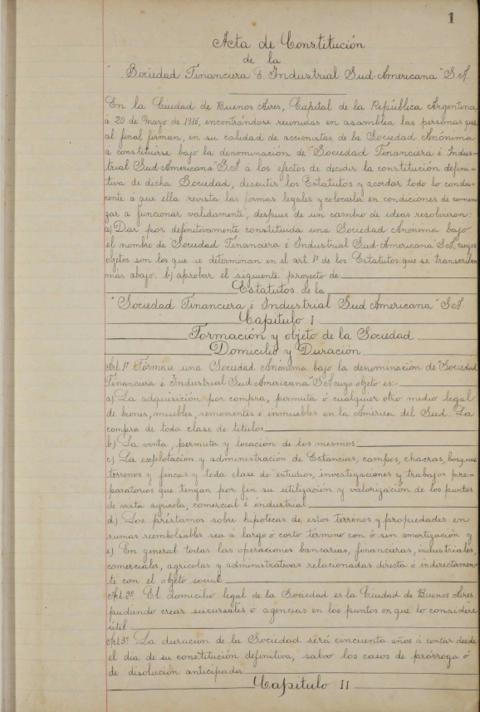 1
Acta de Constitución
de la
"Sociedad Financiera é Industrial Sud-Americana" S.A.
En la Ciudad de Buenos Aires, Capital de la República Argentina
a 20 de Mayo de encontrándose reunidas en asamblea las personas que
al final firman, en su calidad de accionistas de la Sociedad Anónima
a constituirse bajo la denominación de "Sociedad Financiera é Indus-
trial Sud-Americana" S.A. a los efectos de decidir la constitución defini-
tiva de dicha Sociedad, discutir los Estatutos y acordar todo lo condu-
cente a que ella revista las formas legales y colocarla en condiciones de comen-
zar a funcionar válidamente, después de un cambio de ideas resolvieron:
a) Dar por definitivamente constituida una Sociedad Anónima bajo
el nombre de Sociedad Financiera é Industrial Sud-Americana" S.A. cuyos
objetos son los que se determinan en el art. 1º de los Estatutos que se transcriben
más abajo. b) aprobar el siguiente proyecto de
Estatutos de la
"Sociedad Financiera é Industrial Sud Americana" S.A.
Capítulo I
Formación y objeto de la Sociedad
Domicilio y Duración
Art. 1º Formar una Sociedad Anónima bajo la denominación de "Sociedad
Financiera é Industrial Sud Americana" S.A. cuyo objeto es:
a) La adquisición por compra, permuta ó cualquier otro medio legal
de bienes, muebles, semovientes é inmuebles en la América del Sud. La
compra de toda clase de títulos
b) La venta, permuta y locación de los mismos
c) La explotación y administración de Estancias, campos, chacras, bosques,
terrenos y fincas y toda clase de estudios, investigaciones y trabajos pre-
paratorios que tengan por fin su utilización y valorización de los puntos
de vista agrícola, comercial é industrial
d) Los préstamos sobre hipotecas de estos terrenos y propiedades en
sumas reembolsables sea a largo ó corto término con ó sin amortización y
e) En general todas las operaciones bancarias, financieras, industriales,
comerciales, agrícolas y administrativas relacionadas directa ó indirectamen-
te con el objeto social
Art. 2º El domicilio legal de la Sociedad es la Ciudad de Buenos Aires
pudiendo crear sucursales ó agencias en los puntos en que lo considere
útil
Art. 3º La duración de la Sociedad será cincuenta años á contar desde
el día de su constitución definitiva, salvo los casos de prórroga ó
de disolución anticipada
Capítulo II